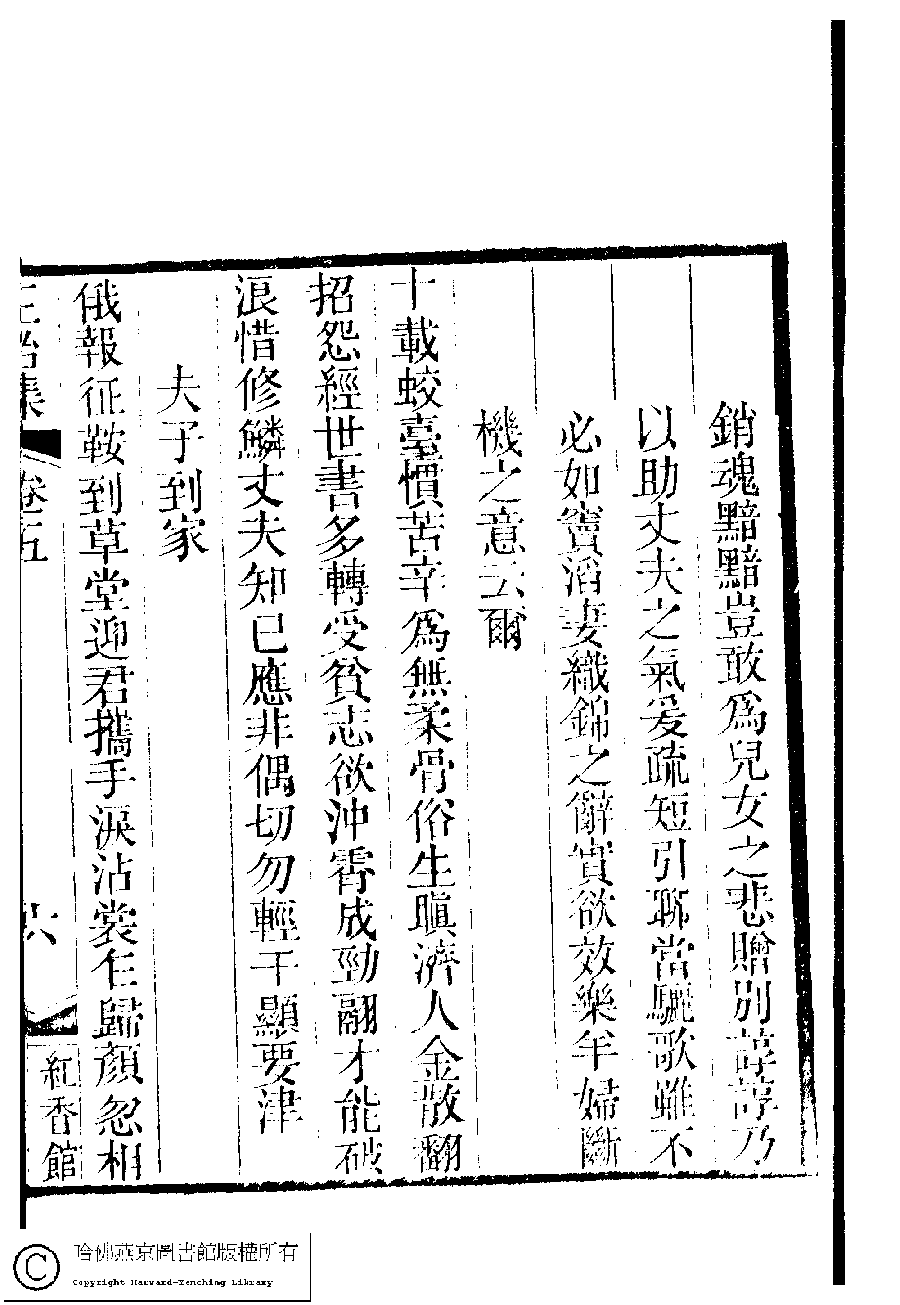 銷魂黯黯豈敢爲兒女之悲贈別諄諄乃
以助丈夫之氣爰疏短引聊當驪歌雖不
必如竇滔妻織錦之辭實欲效樂羊婦斷
機之意云爾
十載蛟臺慣苦辛爲無柔骨俗生瞋濟人金散翻
招怨經世書多轉受貧志欲沖霄成勁翮才能破
浪惜修鱗丈夫知已應非偶切勿輕干顯要津
夫子到家
俄報征鞍到草堂迎君攜手淚沾裳乍歸顏忽相
正始集
卷五
六
紅香館
哈佛燕京圖書館版權所有
Copyright Harvard-Yenching Library